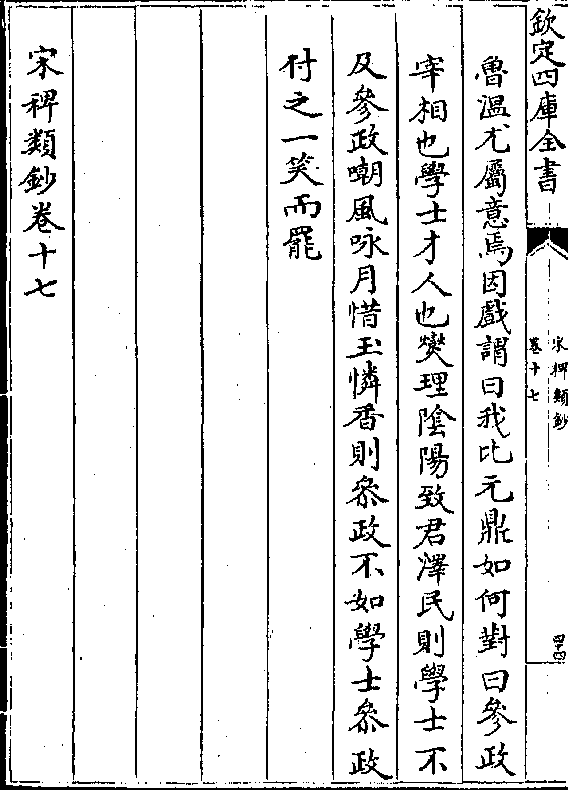 欽定四庫全書
宋稗類鈔
卷十七
四十四
魯溫尤屬意焉因戲謂曰我比元鼎如何對曰參政
宰相也學士才人也爕理隂陽致君澤民則學士不
及參政嘲風咏月惜玉憐香則叅政不如學士叅政
付之一笑而罷
宋稗類鈔卷十七